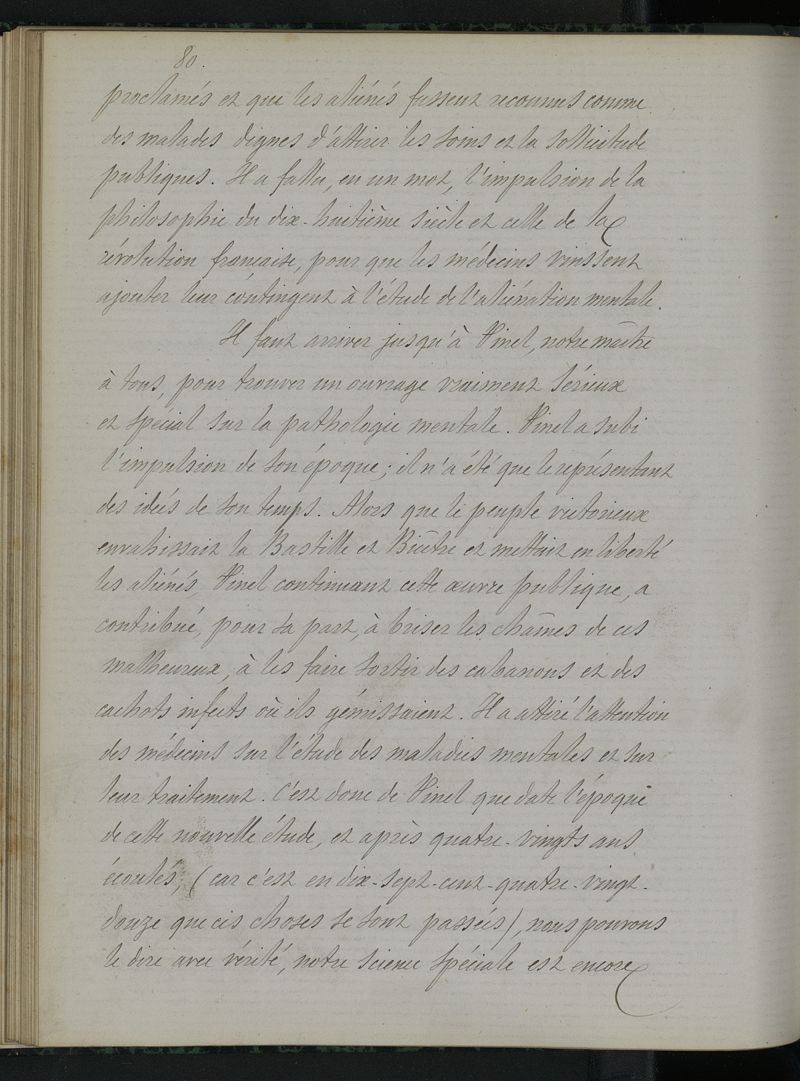 80.
proclamés et que les aliénés fussent reconnus comme
des malades dignes d'attirer les soins et la sollicitude
publiques. Il a fallu, en un mot, l'impulsion de la
philosophie du dix-huitième siècle et celle de la
révolution française, pour que les médecins vinssent
ajouter leur contingent à l'étude de l'aliénation mentale.
Il faut arriver jusqu'à Pinel, notre maître
à tous, pour trouver un ouvrage vraiment sérieux
et spécial sur la pathologie mentale. Pinel a subi
l'impulsion de son époque; il n'a été que le représentant
des idées de son temps. Alors que le peuple victorieux
envahissait la Bastille et Bicêtre et mettait en liberté
les aliénés, Pinel continuant cette œuvre publique, a
contribué, pour sa part, à briser les chaînes de ces
malheureux, à les faire sortir des cabanons et des
cachots infects où ils gémissaient. Il a attiré l'attention
des médecins sur l'étude des maladies mentales et sur
leur traitement. C'est donc de Pinel que date l'époque
de cette nouvelle étude, et après quatre-vingts ans
écoulés, (car c'est en dix-sept-cent-quatre-vingt-
douze que ces choses se sont passées), nous pouvons
le dire avec vérité, notre science spéciale est encore